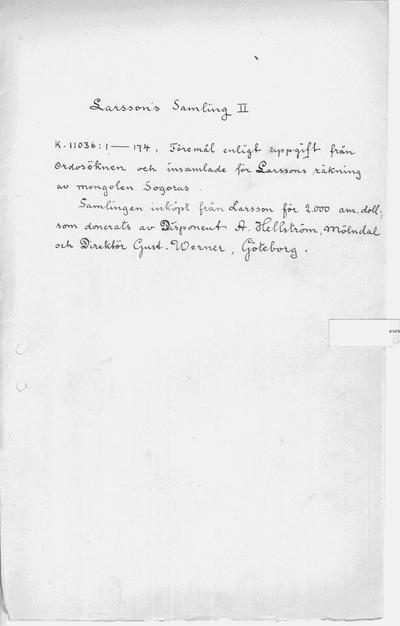 Larsson's Samling II
K. 11036:1 — 174. Föremål enligt uppgift från
Ordosöknen och insamlade för Larssons räkning
av mongolen Sogoras.
Samlingen inköpt från Larsson för 2.000 am. doll.,
som donerats av Disponent A. Hellström, Mölndal
och Direktör Gust. Werner, Göteborg.